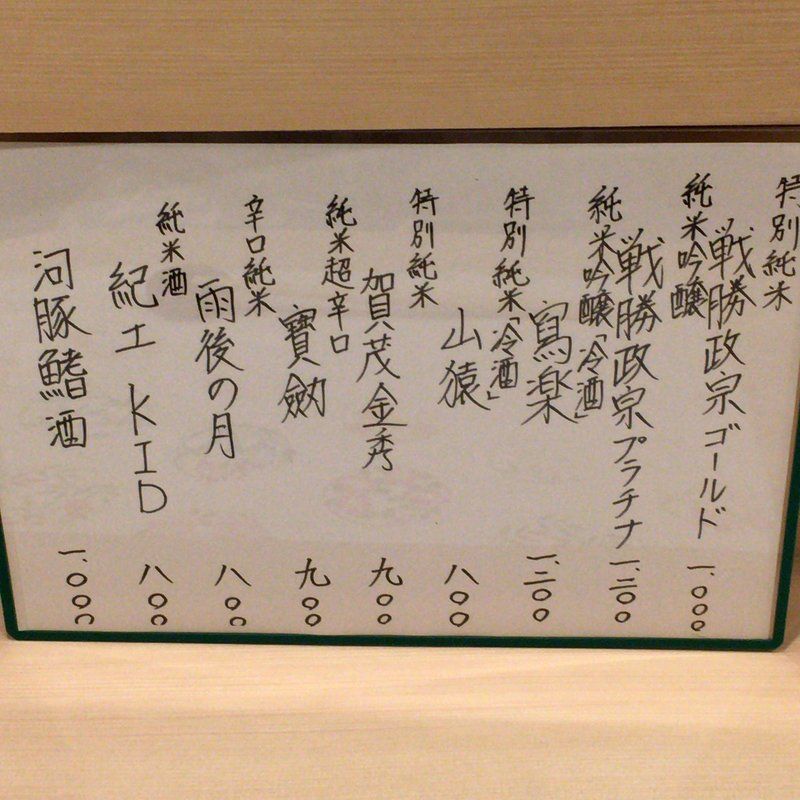 特別純米
戦勝政宗ゴールド 一、〇〇〇
純米吟醸
戦勝政宗プラチナ 一、三〇〇
純米吟醸「冷酒」
寫楽 一、三〇〇
特別純米「冷酒」
山猿 八〇〇
特別純米
賀茂金秀 九〇〇
純米超辛口
寶劔 九〇〇
辛口純米
雨後の月 八〇〇
純米酒
紀土 KID 八〇〇
河豚鰭酒 一、〇〇〇